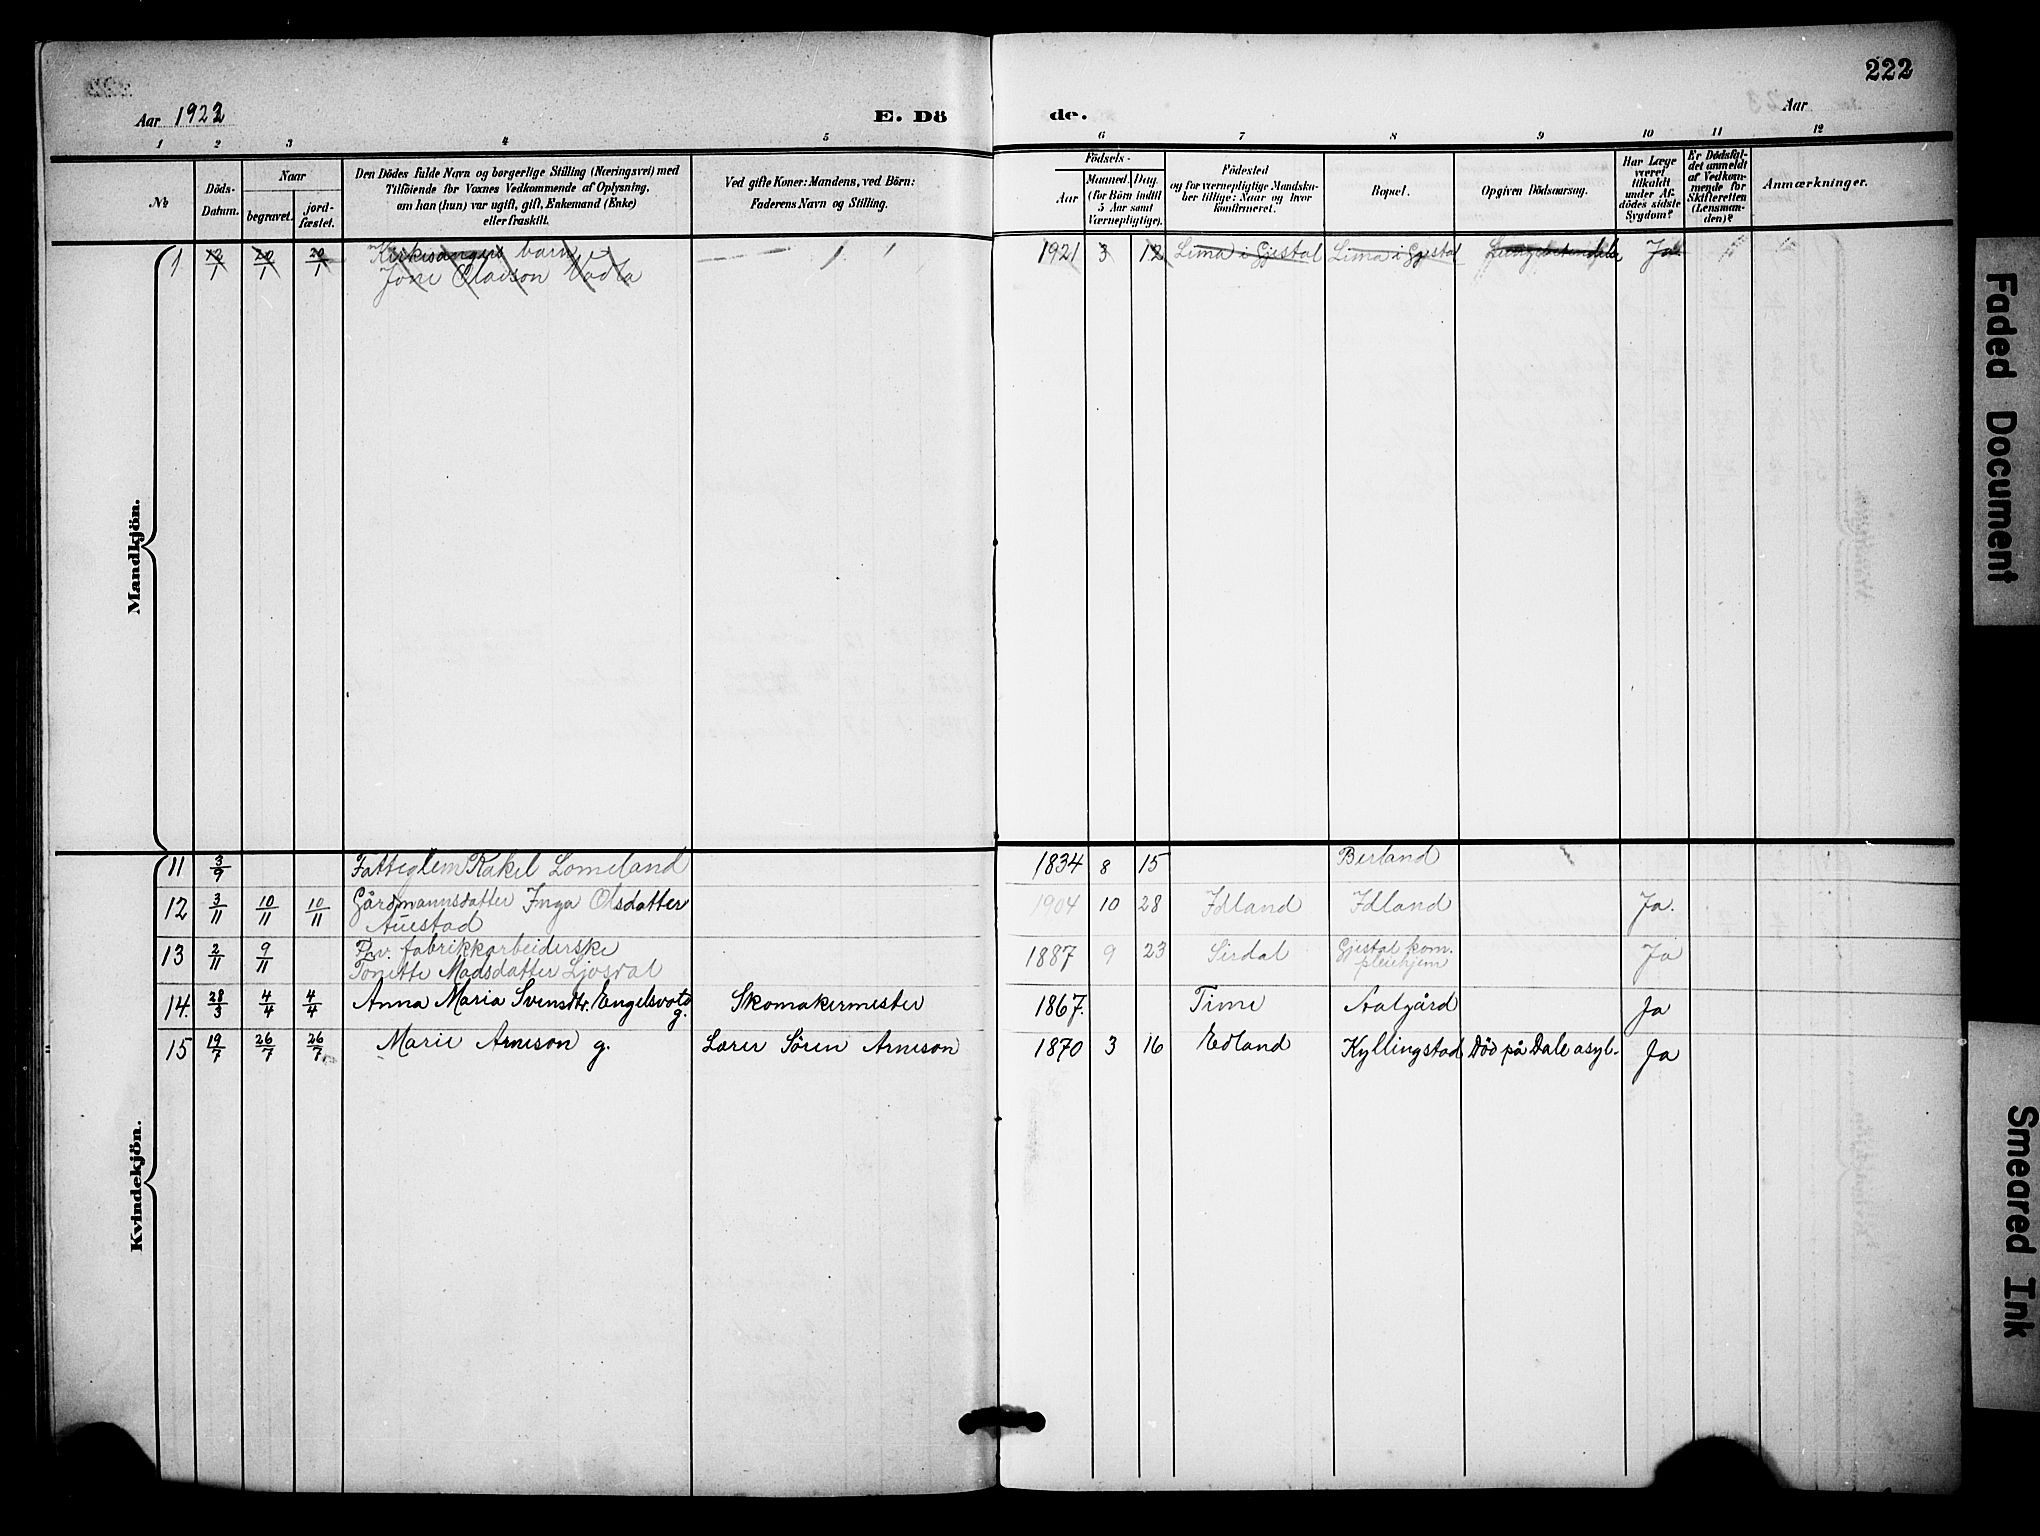 222
Aar 1922
E. Dö
de.
Aar
1 2 3 4 5 6 7 8 9 10 11 12
№
Döds-
Datum.
Naar
begravet.
jord-
fæstet.
Den Dödes fulde Navn og borgerlige Stilling (Næringsvei) med
Tilföiende for Voxnes Vedkommende af Oplysning,
om han (hun) var ugift, gift, Enkemand (Enke)
eller fraskilt.
Ved gifte Koner: Mandens, ved Börn:
Faderens Navn og Stilling.
Födsels-
Aar
Maaned. Dag.
(for Börn indtil
5 Aar samt
Værnepligtige).
Födested
og for værnepligtige Mandska-
ber tillige: Naar og hvor
konfirmeret.
Bopæl.
Opgiven Dödsaarsag.
Har Læge
været
tilkaldt
under Af-
dödes sidste
Sygdom?
Er Dödsfal-
det anmeldt
af Vedkom-
mende for
Skifteretten
(Lensman-
den)?
Anmærkninger.
Mandkjön.
1 12/1 20/1 20/1 Kirkesangers barn 1921 3 12 Lima i Gjestal Lima i Gjestal Ja
Jone Oladson
Kvindekjön.
11 3/9 Fattiglem Rakel Lomeland 1834 8 15 Berland
12 3/11 10/11 10/11 Gårdmannsdatter Inga Olsdatter 1904 10 28 Idland Idland Ja.
Auestad
13 2/11 9/11 Fhv. fabrikkarbeiderske 1887 9 23 Sirdal Gjestal kom. Ja
Tonette Madsdatter Ljosdal pleiehjem
14. 28/3 4/4 4/4 Anna Maria Svensdtr. Engelsvold g. Skomakermester 1867. Time Aalgård Ja
15 19/7 26/7 26/7 Marie Arneson g. Lærer Sören Arneson 1870 3 16 Edland Kyllingstad Död på Dale asyl. Ja
Faded Document
Smeared Ink